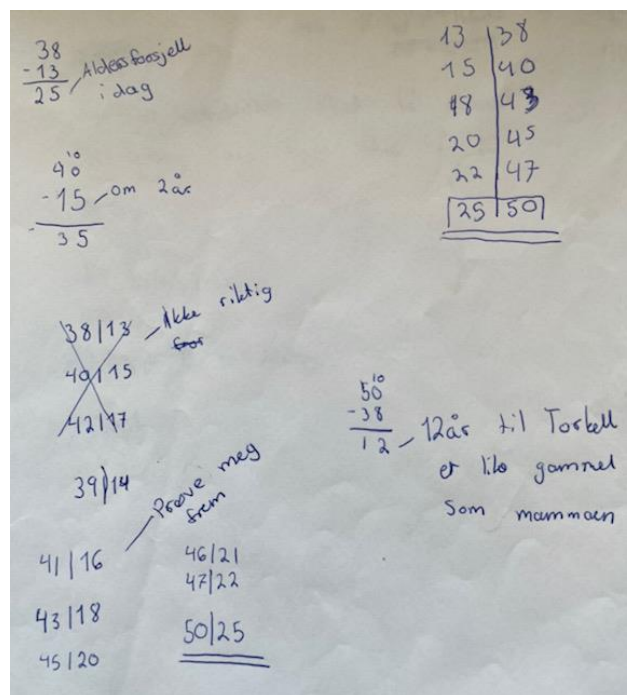 38
-13
25
Aldersforsjell
i dag
10
40
-15
-35
om 2 år
38|13
40|15
42|17
Ikke riktig
39|14
Prøve meg
frem
41|16
43|18
45|20
46|21
47|22
50|25
13|38
15|40
18|43
20|45
22|47
25|50
10
50
-38
12
12år til Torkell
er like gammel
som mammaen